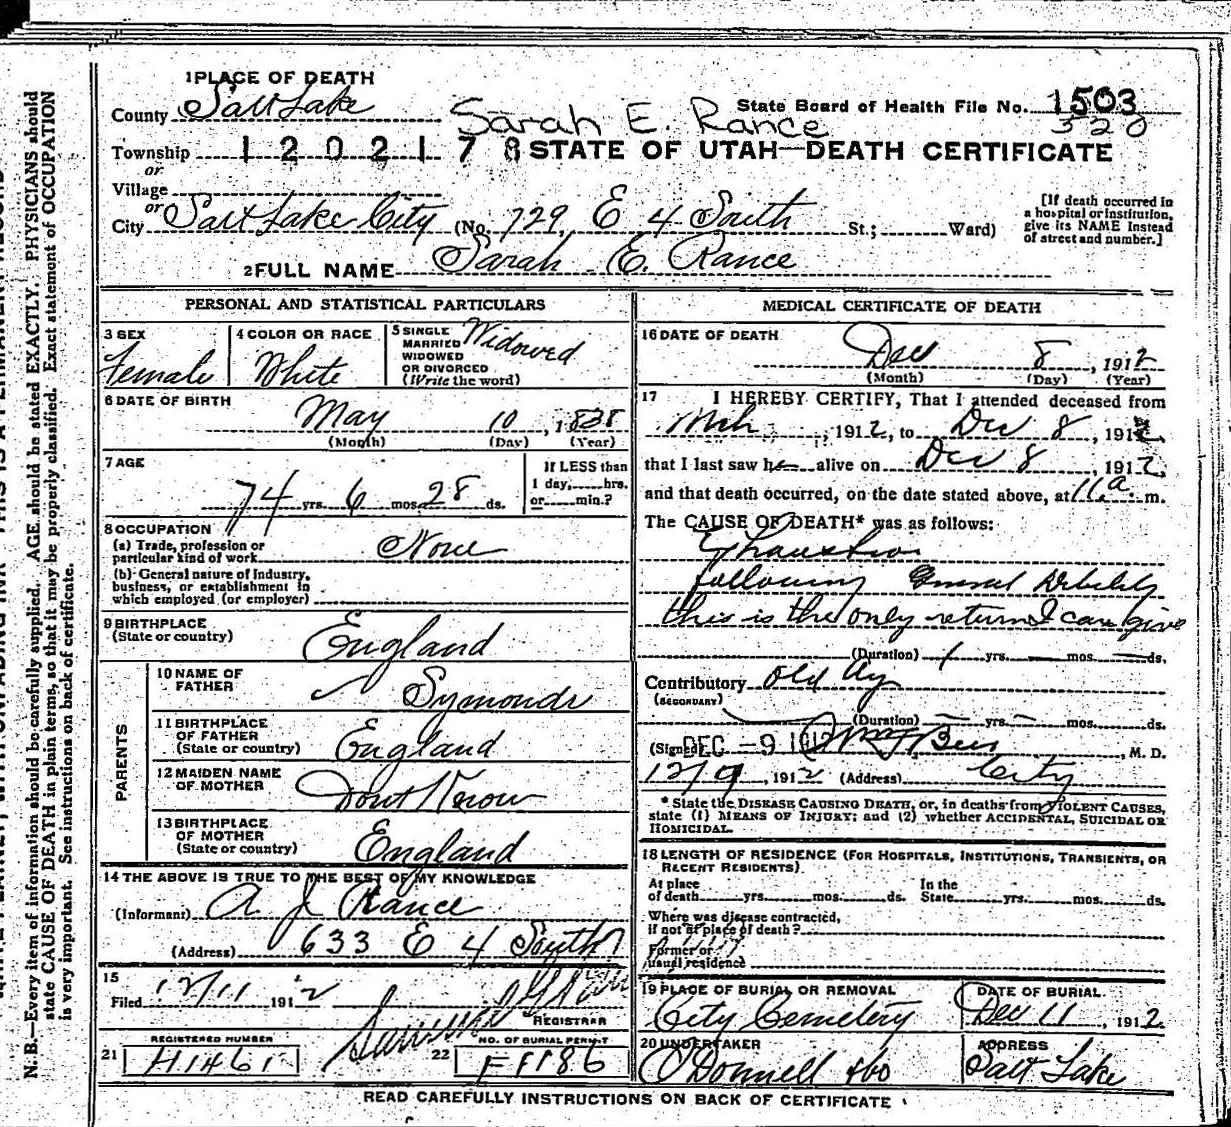 N. B.—Every item of information should be carefully supplied. AGE should be stated EXACTLY. PHYSICIANS should
state CAUSE OF DEATH in plain terms, so that it may be properly classified. Exact statement of OCCUPATION
is very important. See instructions on back of certificate.
1 PLACE OF DEATH
County Salt Lake
State Board of Health File No. 1503
Sarah E. Rance 320
Township 1 2 0 2 1 7 8 STATE OF UTAH—DEATH CERTIFICATE
or
Village
or
City Salt Lake City (No. 729, E 4 South St.; Ward)
[If death occurred in
a hospital or institution,
give its NAME instead
of street and number.]
2 FULL NAME Sarah E. Rance
PERSONAL AND STATISTICAL PARTICULARS
3 SEX
Female
4 COLOR OR RACE
White
5 SINGLE
MARRIED
WIDOWED
OR DIVORCED
(Write the word)
Widowed
6 DATE OF BIRTH
May 10, 1838
(Month) (Day) (Year)
7 AGE
74 yrs. 6 mos. 28 ds.
If LESS than
1 day, hrs.
or min.?
8 OCCUPATION
(a) Trade, profession or
particular kind of work None
(b) General nature of industry,
business, or establishment in
which employed (or employer)
9 BIRTHPLACE
(State or country) England
PARENTS
10 NAME OF
FATHER Symonds
11 BIRTHPLACE
OF FATHER
(State or country) England
12 MAIDEN NAME
OF MOTHER Dont Know
13 BIRTHPLACE
OF MOTHER
(State or country) England
14 THE ABOVE IS TRUE TO THE BEST OF MY KNOWLEDGE
(Informant) A J Rance
(Address) 633 E 4 South
15
Filed 12/11 1912
REGISTRAR
REGISTERED NUMBER
21 H1461
NO. OF BURIAL PERMIT
22 FF186
MEDICAL CERTIFICATE OF DEATH
16 DATE OF DEATH
Dec 8, 1912
(Month) (Day) (Year)
17 I HEREBY CERTIFY, That I attended deceased from
Mch, 1912, to Dec 8, 1912
that I last saw h alive on Dec 8, 1912
and that death occurred, on the date stated above, at 11 a m.
The CAUSE OF DEATH* was as follows:
Exhaustion
following General Debility
this is the only return I can give
(Duration) 1 yrs. — mos. — ds.
Contributory Old Age
(SECONDARY)
(Duration) — yrs. — mos. ds.
(Signed) DEC -9 1912 M. D.
12/9, 1912 (Address) City
* State the DISEASE CAUSING DEATH, or, in deaths from VIOLENT CAUSES,
state (1) MEANS OF INJURY; and (2) whether ACCIDENTAL, SUICIDAL OR
HOMICIDAL.
18 LENGTH OF RESIDENCE (FOR HOSPITALS, INSTITUTIONS, TRANSIENTS, OR
RECENT RESIDENTS)
At place
of death yrs. mos. ds.
In the
State yrs. mos. ds.
Where was disease contracted,
if not at place of death?
Former or
usual residence
19 PLACE OF BURIAL OR REMOVAL
City Cemetery
DATE OF BURIAL
Dec 11, 1912
20 UNDERTAKER
O'Donnell & Co
ADDRESS
Salt Lake
READ CAREFULLY INSTRUCTIONS ON BACK OF CERTIFICATE